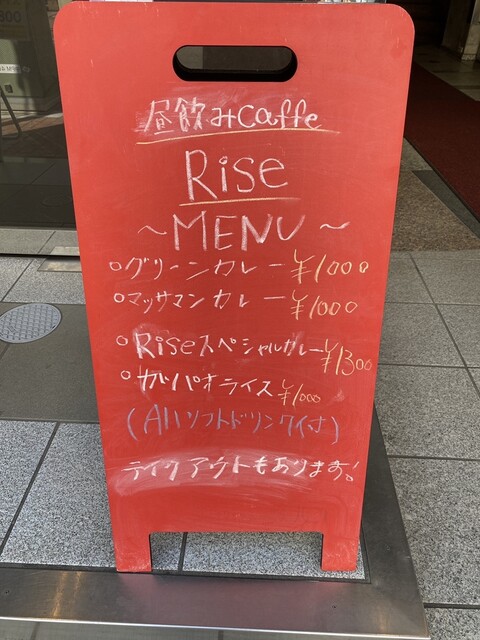 昼飲みcaffe
Rise
～MENU～
○グリーンカレー ¥1000
○マッサマンカレー ¥1000
○Riseスペシャルカレー ¥1300
○ガパオライス ¥1000
(Allソフトドリンク付)
テイクアウトもあります!